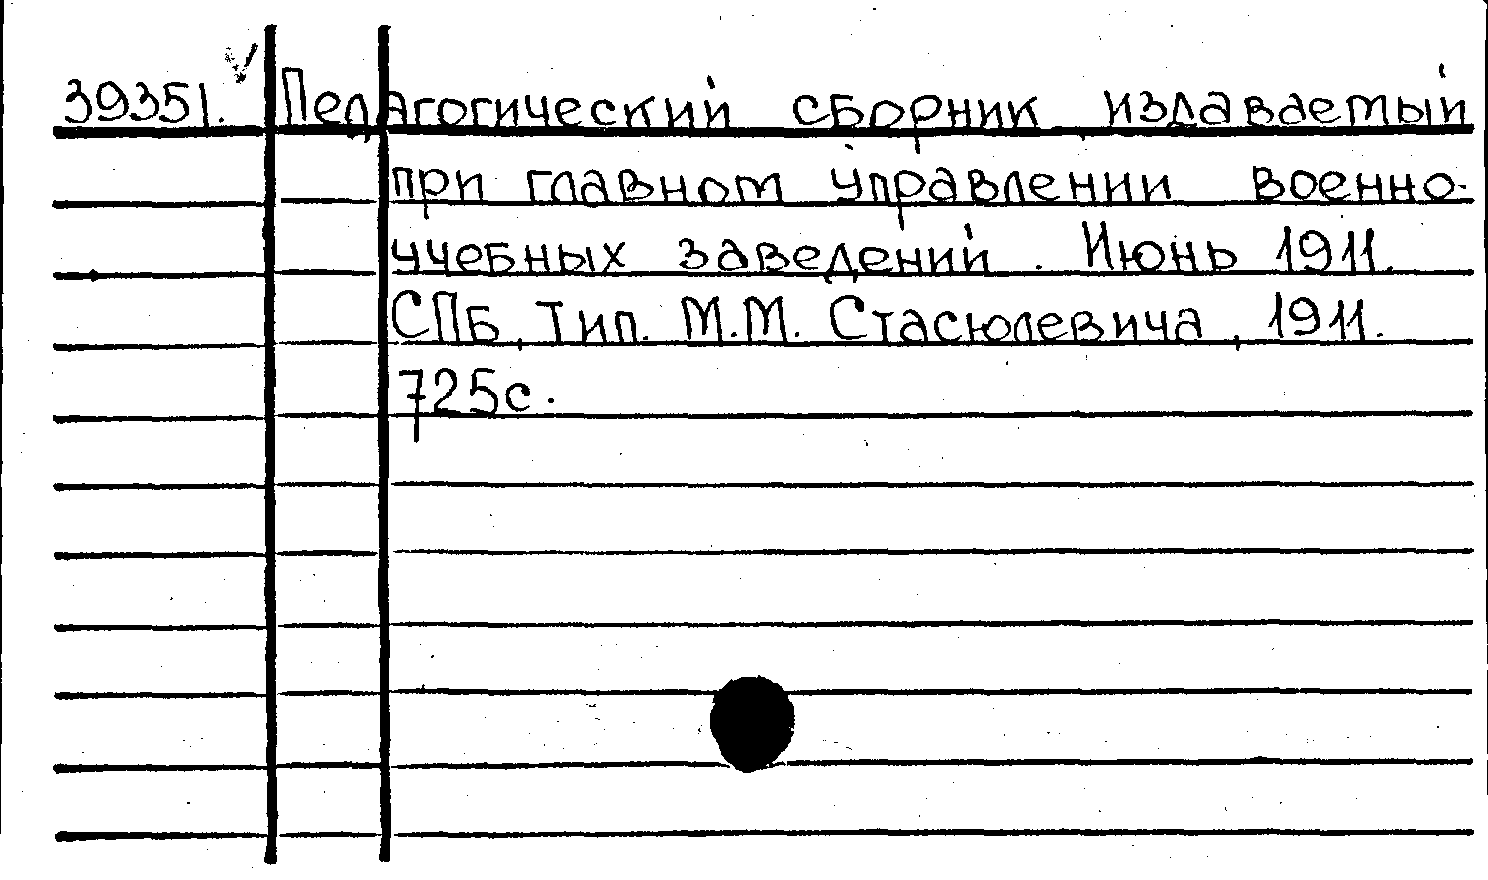 39351. Педагогический сборник издаваемый
при главном управлении военно-
учебных заведений. Июнь 1911.
СПБ, Тип. М.М. Стасюлевича, 1911.
725с.